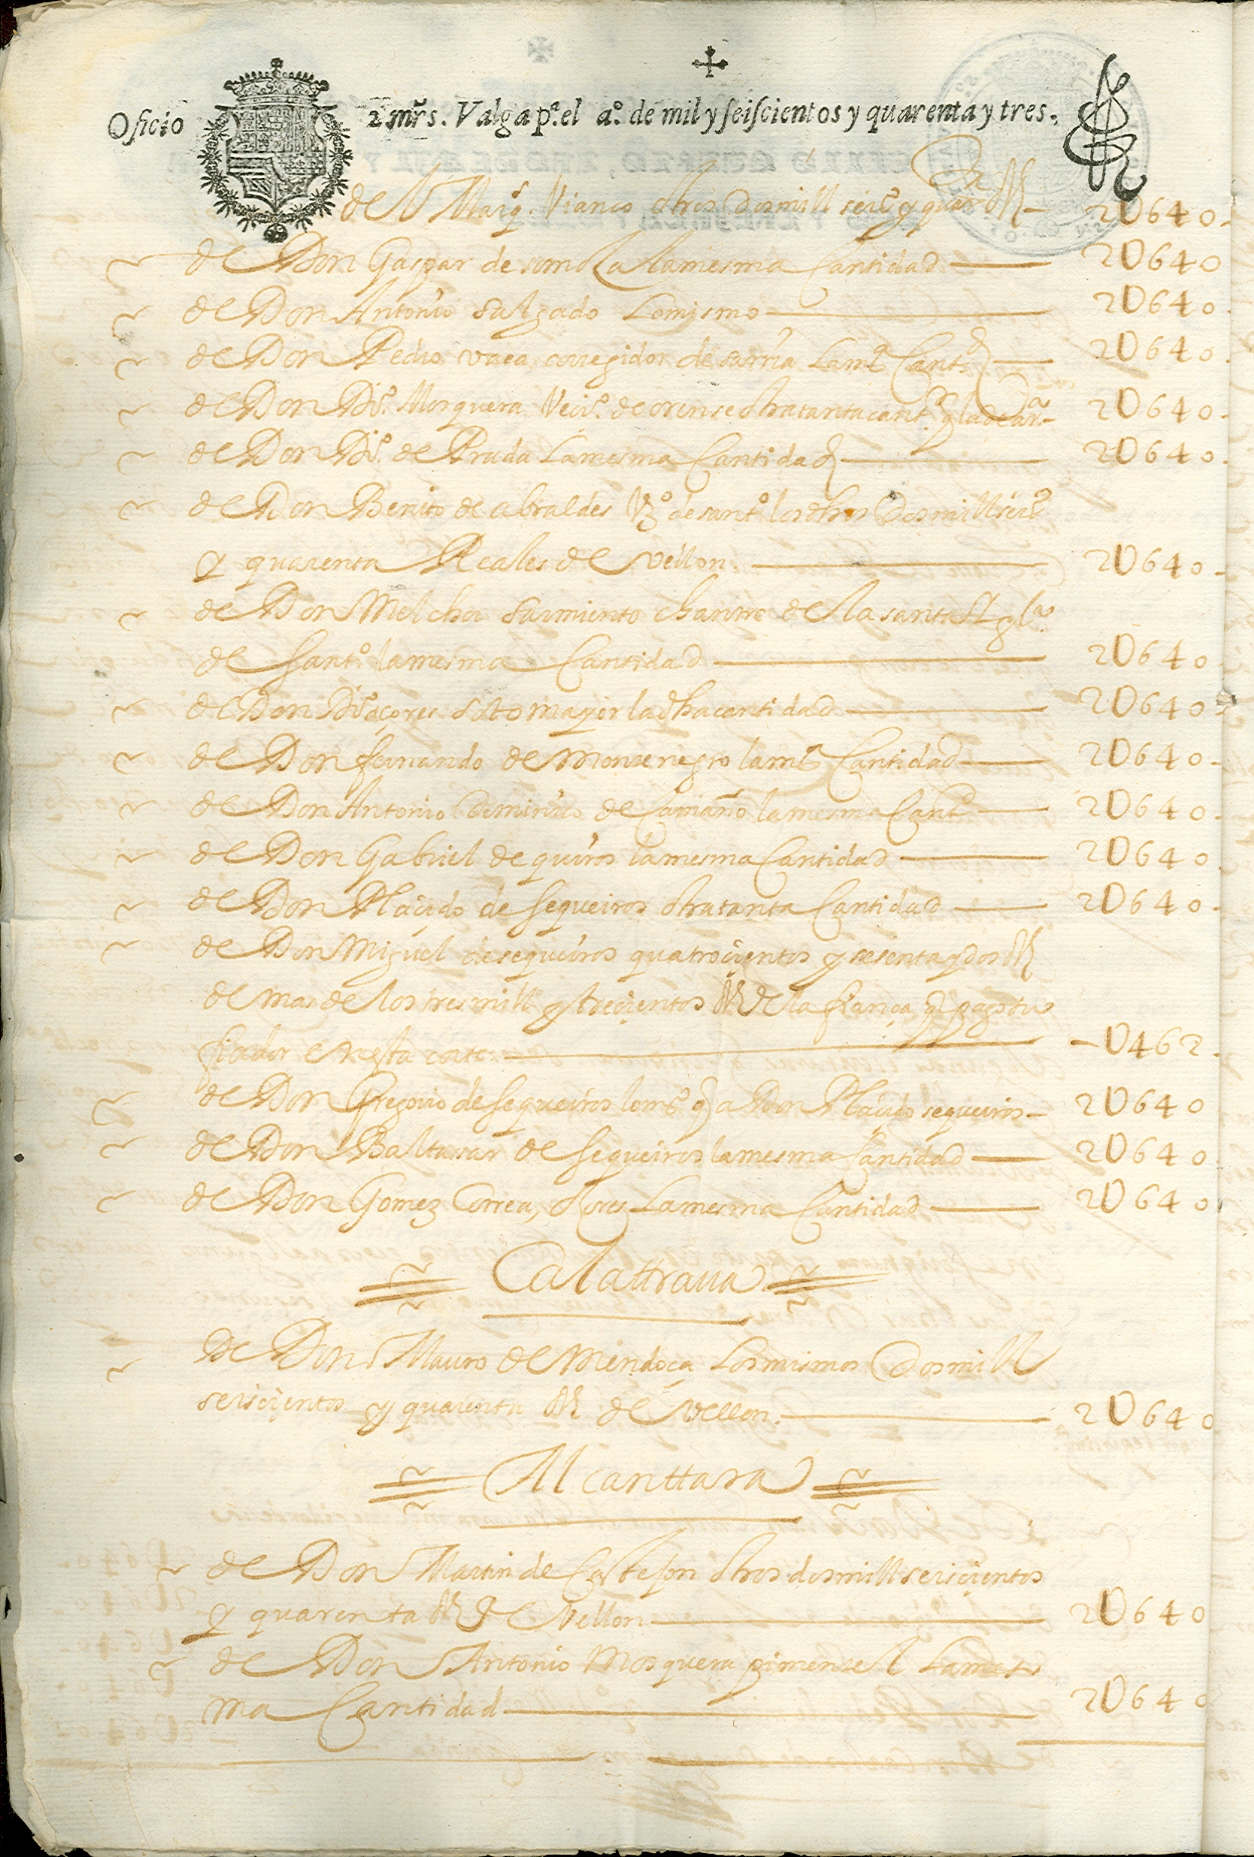 Oficio 2 mrs. Valga pª. el aº. de mil y seiscientos y quarenta y tres.
del Marqs. Vianco otros Dos mill seisº y quarta Rs 2U640
de Don Gaspar de la mesma Cantidad 2U640
de Don Antonio Salgado Lo mismo 2U640
de Don Pedro vaca corregidor de sarria La mª Cantd 2U640
de Don Dºˢ. Mosquera Veciº. de orense otra tanta cantd 2U640
de Don Dº. de Prada La mesma Cantidad 2U640
de Don Benito de abraldes Vzº de santº los dhos Dos mill seisº
y quarenta Reales de vellon. 2U640
de Don Melchor Sarmiento chantre de la santa Yglª
de Santº la mesma Cantidad 2U640
de Don Dº açores Sotomayor la dha cantidad 2U640
de Don fernando de Montenegro la mª Cantidad 2U640
de Don Antonio de Camaño la mesma Cantd 2U640
de Don Gabriel de quiros la mesma Cantidad 2U640
de Don Plaçido de sequeiros otra tanta Cantidad 2U640
de Don Miguel de sequeiros quatrocientos y sesenta y dos Rs
de mas de los tres mill y trecientos Rs de la fiança q pago su
fiador en esta corte U462
de Don Gregorio de sequeiros lo mº q a Don Plaçido sequeiros 2U640
de Don Baltasar de sequeiros la mesma Cantidad 2U640
de Don Gomez Correa, La mesma Cantidad 2U640
Calattraua
de Don Mauro de Mendoça Los mismos Dos mill
seiscientos y quarenta Rs de vellon. 2U640
Alcanttara
de Don Martin de Castejon otros dos mill seiscientos
y quarenta Rs de vellon 2U640
de Don Antonio Mosquera pimentel La mes
ma Cantidad 2U640